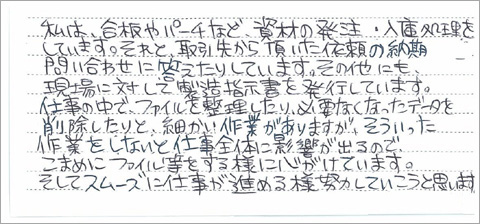 私は、合板やパーチなど、資材の発注・入庫処理を
しています。それと、取引先から頂いた依頼の納期
問い合わせに答えたりしています。その他にも、
現場に対して製造指示書を発行しています。
仕事の中で、ファイルを整理したり、必要なくなったデータを
削除したりと、細かい作業がありますが、そういった
作業をしないと仕事全体に影響が出るので、
こまめにファイル等をする様に心がけています。
そしてスムーズに仕事が進める様努力していこうと思います